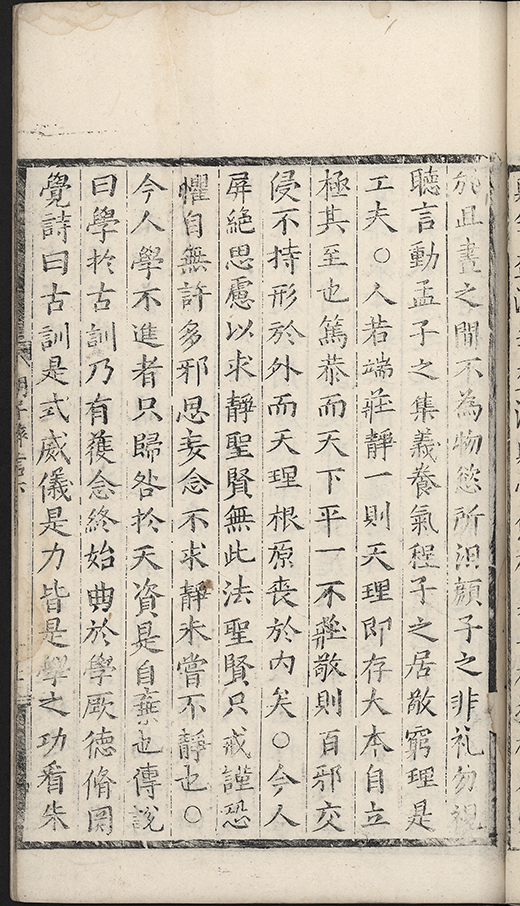 於旦晝之間不為物慾所汨顔子之非礼勿視
聽言動孟子之集義養氣程子之居敬窮理是
工夫○人若端莊靜一則天理即存大本自立
極其至也篤恭而天下平一不莊敬則百邪交
侵不持形於外而天理根原丧於內矣○今人
屏絕思慮以求靜聖賢無此法聖賢只戒謹恐
懼自無許多邪思妄念不求靜未嘗不靜也○
今人學不進者只歸咎於天資是自棄也傳說
曰學於古訓乃有獲念終始典於學厥德脩罔
覺詩曰古訓是式威儀是力皆是學之功看朱